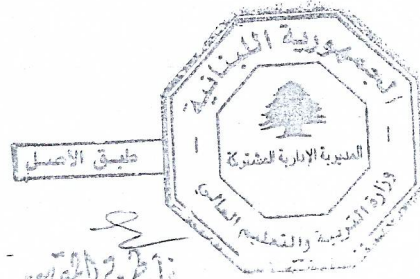 الجمهورية اللبنانية
المديرية الإدارية المشتركة
وزارة التربية والتعليم العالي
طبق الأصل